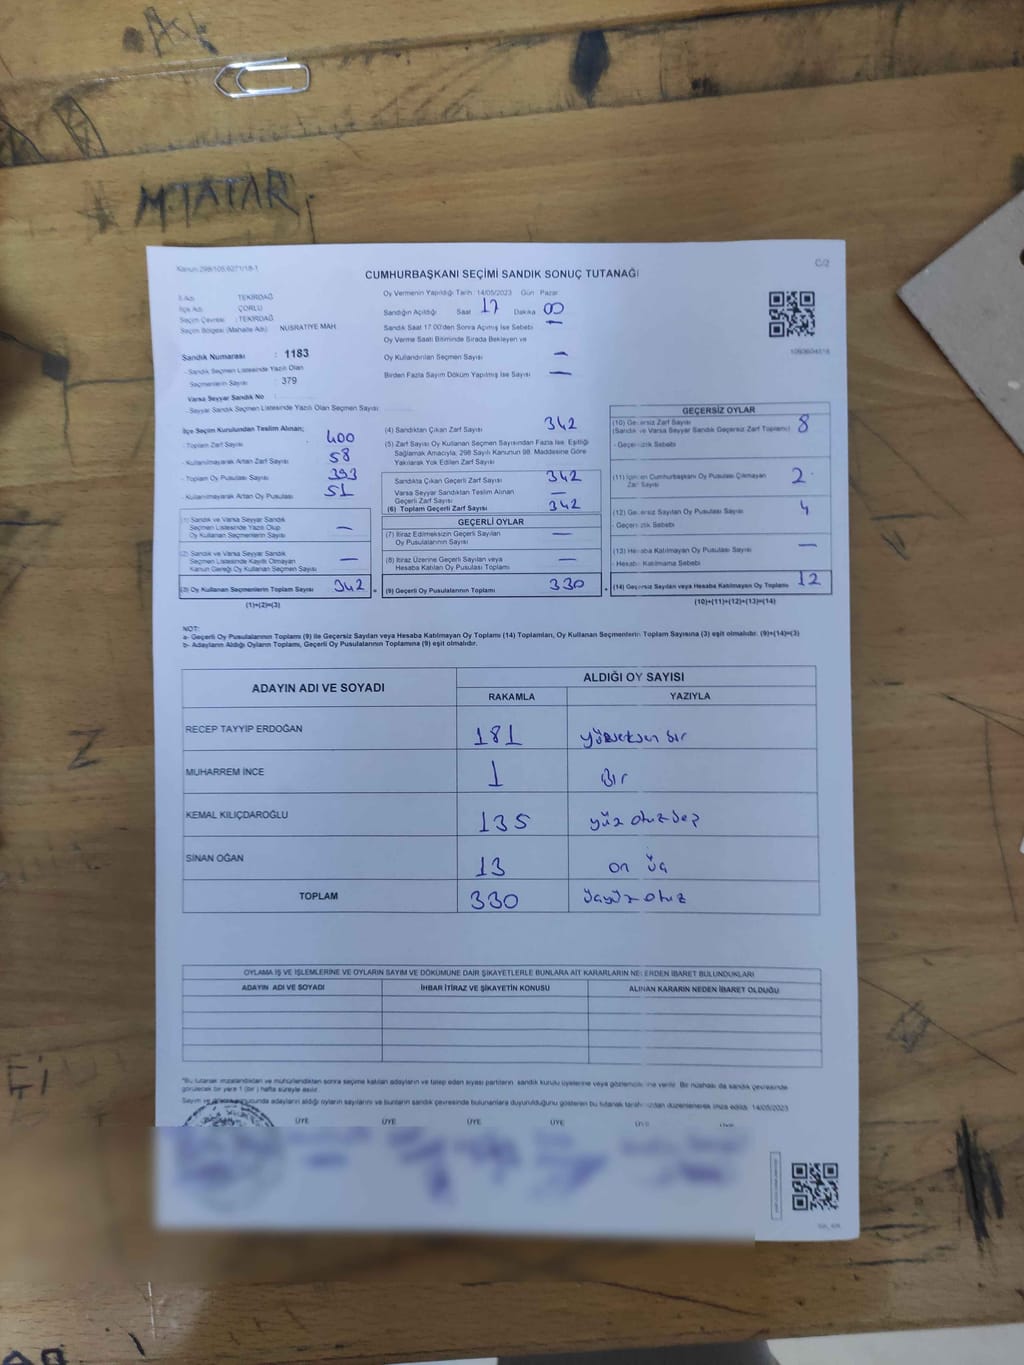 M.TATAR
Kanun:298/105,6271/18-1
C/2
CUMHURBAŞKANI SEÇİMİ SANDIK SONUÇ TUTANAĞI
İl Adı : TEKİRDAĞ
İlçe Adı : ÇORLU
Seçim Çevresi : TEKİRDAĞ
Seçim Bölgesi (Mahalle Adı) : NUSRATİYE MAH.
Sandık Numarası : 1183
- Sandık Seçmen Listesinde Yazılı Olan
Seçmenlerin Sayısı : 379
Varsa Seyyar Sandık No
- Seyyar Sandık Seçmen Listesinde Yazılı Olan Seçmen Sayısı
Oy Vermenin Yapıldığı Tarih : 14/05/2023 Gün : Pazar
Sandığın Açıldığı Saat 17 Dakika 00
Sandık Saat 17.00'den Sonra Açımış İse Sebebi —
Oy Verme Saati Bitiminde Sırada Bekleyen ve
Oy Kullandırılan Seçmen Sayısı —
Birden Fazla Sayım Döküm Yapılmış İse Sayısı —
İlçe Seçim Kurulundan Teslim Alınan;
- Toplam Zarf Sayısı 400
- Kullanılmayarak Artan Zarf Sayısı 58
- Toplam Oy Pusulası Sayısı 393
- Kullanılmayarak Artan Oy Pusulası 51
(1) Sandık ve Varsa Seyyar Sandık
Seçmen Listesinde Yazılı Olup
Oy Kullanan Seçmenlerin Sayısı —
(2) Sandık ve Varsa Seyyar Sandık
Seçmen Listesinde Kayıtlı Olmayan
Kanun Gereği Oy Kullanan Seçmen Sayısı —
(3) Oy Kullanan Seçmenlerin Toplam Sayısı 342 =
(1)+(2)=(3)
(4) Sandıktan Çıkan Zarf Sayısı 342
(5) Zarf Sayısı Oy Kullanan Seçmen Sayısından Fazla İse, Eşitliği
Sağlamak Amacıyla, 298 Sayılı Kanunun 98. Maddesine Göre
Yakılarak Yok Edilen Zarf Sayısı
Sandıkta Çıkan Geçerli Zarf Sayısı 342
Varsa Seyyar Sandıktan Teslim Alınan
Geçerli Zarf Sayısı —
(6) Toplam Geçerli Zarf Sayısı 342
GEÇERLİ OYLAR
(7) İtiraz Edilmeksizin Geçerli Sayılan
Oy Pusulalarının Sayısı —
(8) İtiraz Üzerine Geçerli Sayılan veya
Hesaba Katılan Oy Pusulası Toplamı —
(9) Geçerli Oy Pusulalarının Toplamı 330 +
GEÇERSİZ OYLAR
(10) Geçersiz Zarf Sayısı 8
(Sandık ve Varsa Seyyar Sandık Geçersiz Zarf Toplamı)
- Geçersizlik Sebebi
(11) İçinden Cumhurbaşkanı Oy Pusulası Çıkmayan
Zarf Sayısı 2
(12) Geçersiz Sayılan Oy Pusulası Sayısı 4
- Geçersizlik Sebebi
(13) Hesaba Katılmayan Oy Pusulası Sayısı —
- Hesaba Katılmama Sebebi
(14) Geçersiz Sayılan veya Hesaba Katılmayan Oy Toplamı 12
(10)+(11)+(12)+(13)=(14)
NOT:
a- Geçerli Oy Pusulalarının Toplamı (9) ile Geçersiz Sayılan veya Hesaba Katılmayan Oy Toplamı (14) Toplamları, Oy Kullanan Seçmenlerin Toplam Sayısına (3) eşit olmalıdır. (9)+(14)=(3)
b- Adayların Aldığı Oyların Toplamı, Geçerli Oy Pusulalarının Toplamına (9) eşit olmalıdır.
ADAYIN ADI VE SOYADI
ALDIĞI OY SAYISI
RAKAMLA YAZIYLA
RECEP TAYYİP ERDOĞAN 181 yüzseksen bir
MUHARREM İNCE 1 Bir
KEMAL KILIÇDAROĞLU 135 yüz otuzbeş
SİNAN OĞAN 13 on üç
TOPLAM 330 üçyüz otuz
OYLAMA İŞ VE İŞLEMLERİNE VE OYLARIN SAYIM VE DÖKÜMÜNE DAİR ŞİKAYETLERLE BUNLARA AİT KARARLARIN NELERDEN İBARET BULUNDUKLARI
ADAYIN ADI VE SOYADI İHBAR İTİRAZ VE ŞİKAYETİN KONUSU ALINAN KARARIN NEDEN İBARET OLDUĞU
"Bu tutanak imzalandıktan ve mühürlendikten sonra seçime katılan adayların ve talep eden siyasi partilerin sandık kurulu üyelerine veya gözlemcilerine verilir. Bir nüshası da sandık çevresinde
görülecek bir yere 1 (bir) hafta süreyle asılır.
Sayım ve sonucunda adayların aldığı oyların sayılarını ve bunların sandık çevresinde bulunanlara duyurulduğunu gösteren bu tutanak tarafımızdan düzenlenerek imza edildi. 14/05/2023
ÜYE ÜYE ÜYE ÜYE ÜYE ÜYE